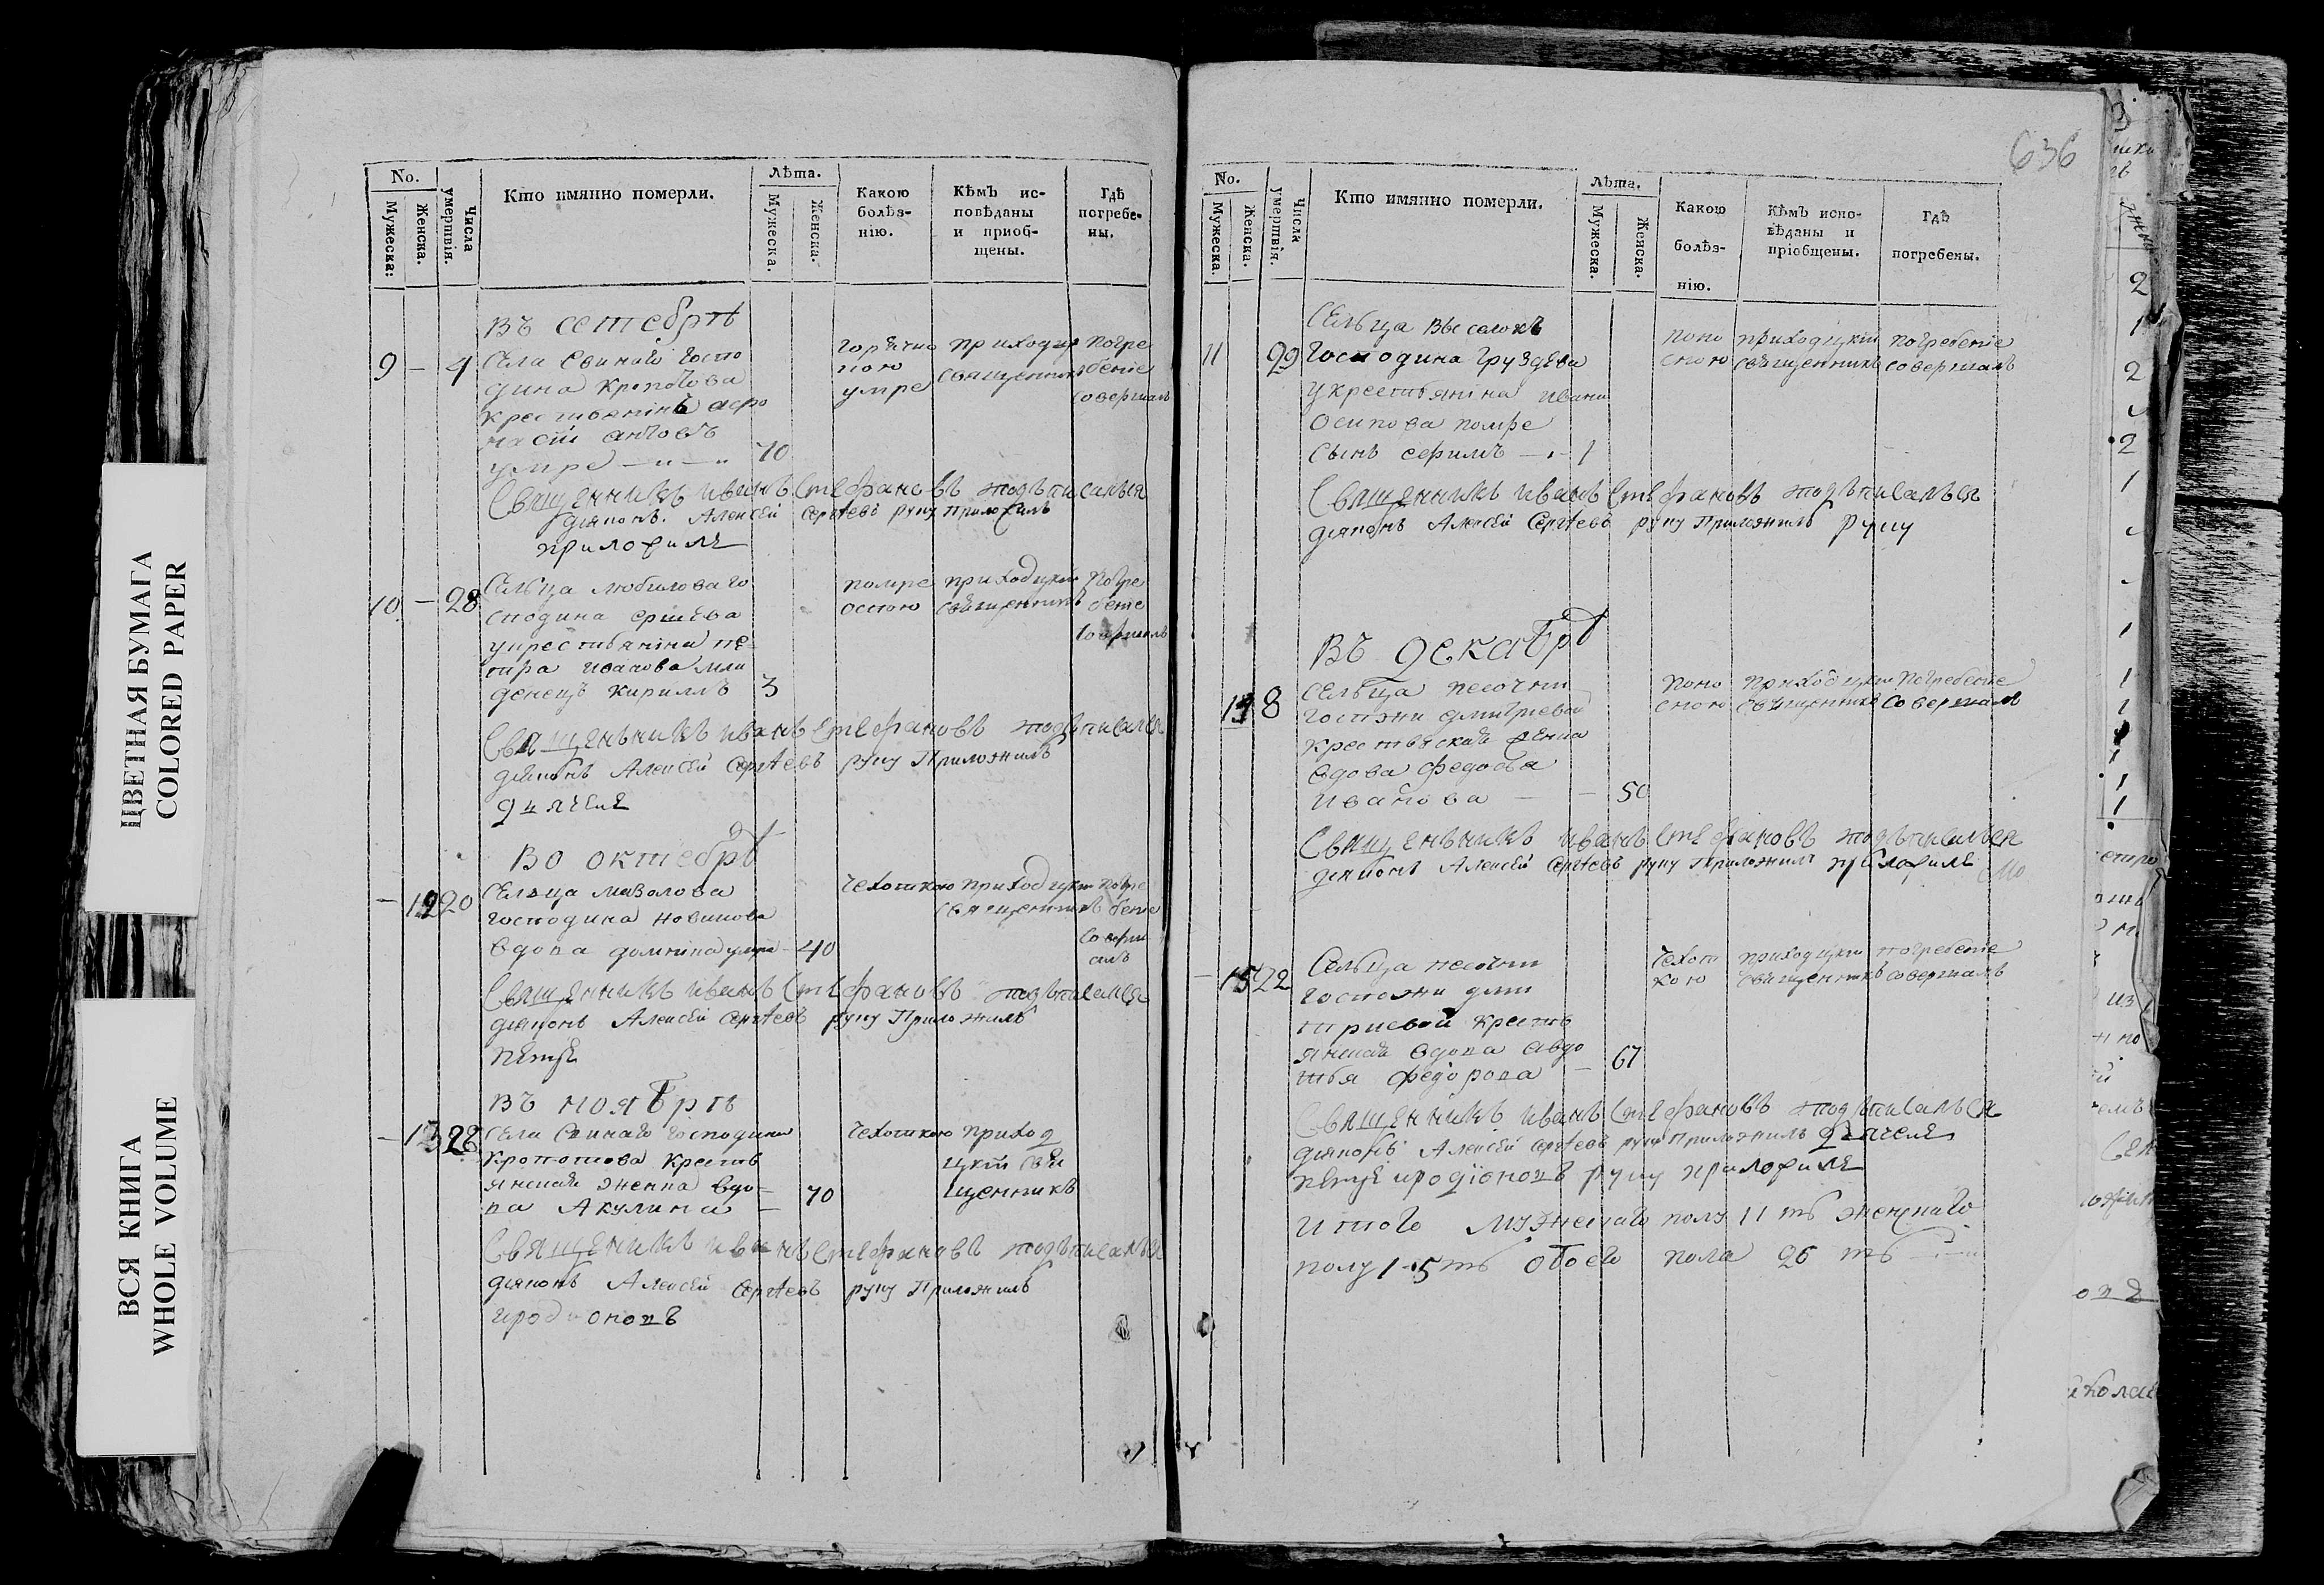 ЦВЕТНАЯ БУМАГА
COLORED PAPER
ВСЯ КНИГА
WHOLE VOLUME
No.
Мужеска:
Женска.
Числа умертвія.
Кто имянно померли.
Лѣта.
Мужеска.
Женска.
Какою болѣз-нію.
Кѣмъ ис-повѣданы и приоб-щены.
Гдѣ погребе-ны.
Въ септебрѣ
9 — 4 Села Свинаго госпо
дина Кропотова
крестьянинъ афо
умре — 70
горячко
ю
умре
приходц
священникъ
погре
бение
совершалъ
Священникъ иванъ Стефановъ подъписалься
дияконъ Алексѣй Сергѣевъ руку Приложилъ
приложилъ
10 — 28 Сельца Любилова го
сподина Ершева
укрестьянина пе
тра иванова мла
денецъ кириллъ 3
помре
оспою
приходцкий
священникъ
погре
бение
совершалъ
Священьникъ иванъ Стефановъ подъписалься
дияконъ Алексѣй Сергѣевъ руку Приложилъ
дьячекъ
Во октебрѣ
— 12 20 Сельца
господина Новикова
вдова домнина умре — 40
чехоткою
приходцкий
священникъ
погре
бение
соверш
алъ
Священникъ иванъ Стефановъ подъписалься
дияконъ Алексѣй Сергѣевъ руку Приложилъ
Въ ноябрѣ
— 13 28 Села Свинаго господина
Кропотова крестъ
янская женка вдо
ва Акулина — 70
чехоткою
приход
цкий свя
щенникъ
Священикъ иванъ Стефановъ подъписалься
дияконъ Алексѣй Сергѣевъ руку Приложилъ
иродионовъ
636
No.
Мужеска.
Женска.
Числа умертвія.
Кто имянно померли.
Лѣта.
Мужеска.
Женска.
Какою болѣз-нію.
Кѣмъ испо-вѣданы и пріобщены.
Гдѣ погребены.
Сельца Выселокъ
11 29 господина Груздева
укрестьянина ивана
осипова помре
сынъ ефимъ — 1
поно
сною
приходцкий
священникъ
погребение
совершалъ
Священникъ иванъ Стефановъ подъписалься
дияконъ Алексѣй Сергѣевъ руку Приложилъ руку
Въ декабрѣ
8 Сельца песочни
госпожи дмитриевой
крестьяской женка
вдова федосья
иванова — — 50
поно
сною
приходцкий
священникъ
погребение
совершалъ
Священьникъ иванъ Стефановъ подъписалься
дияконъ Алексѣй Сергѣевъ руку Приложилъ приложилъ
— 15 22 Сельца песочни
госпожи дми
триевой кресть
янская вдова авдо
тья федорова — 67
чехот
кою
приходцкий
священникъ
погребение
совершалъ
Священникъ иванъ Стефановъ подъписалься
дияконъ Алексѣй Сергѣевъ руку Приложилъ дьячекъ
петръ иродионовъ руку приложилъ
итого мужескаго полу 11 ть женскаго
полу 15 ть обоего пола 26 ть